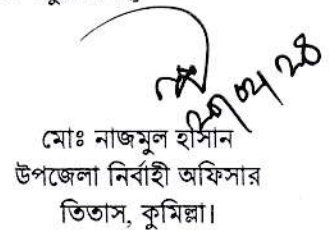 মোঃ নাজমুল হাসান
উপজেলা নির্বাহী অফিসার
তিতাস, কুমিল্লা।